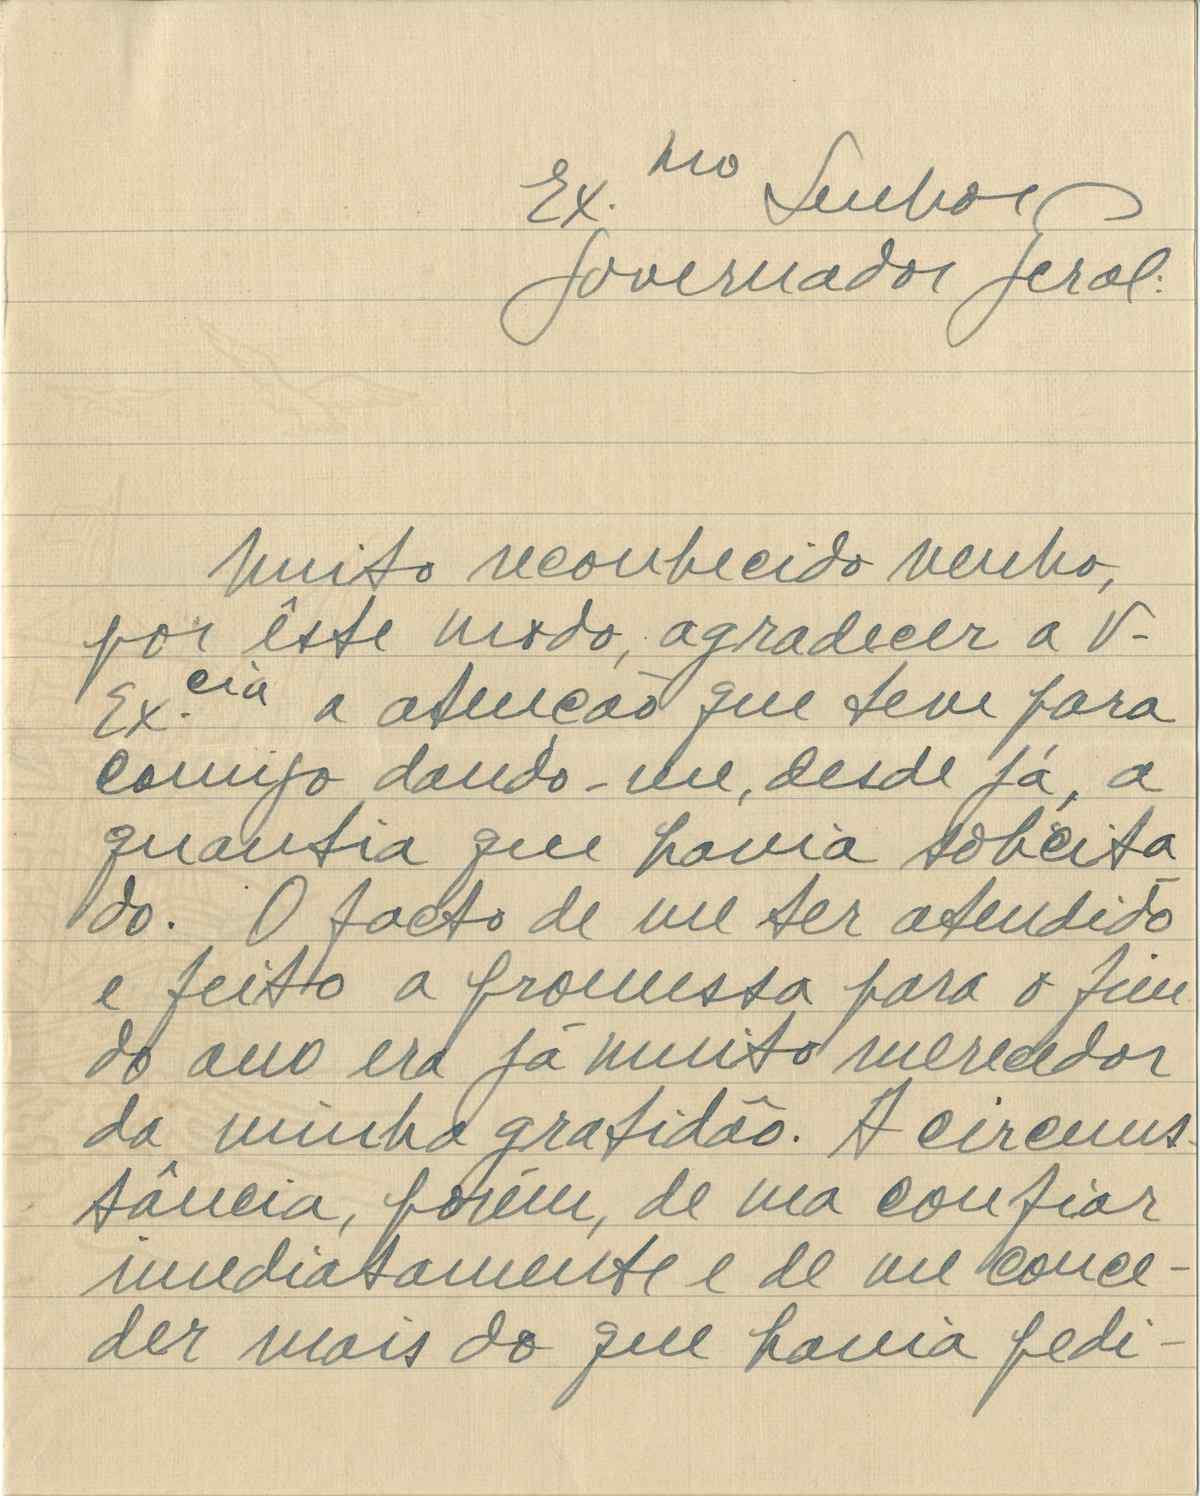 Ex.mo Senhor
Governador Geral:
Muito reconhecido venho,
por êste modo, agradecer a V.
Ex.cia a atenção que teve para
comigo dando-me, desde já, a
quantia que havia solicita
do. O facto de me ter atendido
e feito a promessa para o fim
do ano era já muito merecedor
da minha gratidão. A circuns-
tância, porém, de ma confiar
imediatamente e de me conce-
der mais do que havia pedi-